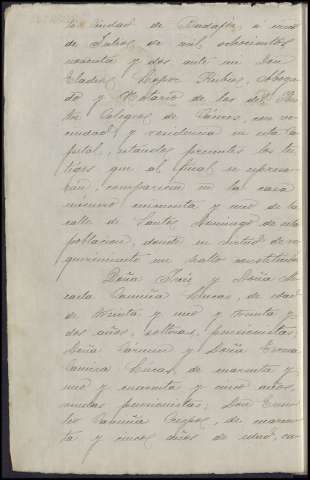 la Ciudad de Badajoz, a cinco
de Febrero de mil ochocientos
noventa y dos ante mi Don
Eladio Lopez Rubio, Aboga-
do y Notario de los del Ilus-
tre Colegio de Cáceres, con ve-
cindad y residencia en esta Ca-
pital, estando presentes los tes-
tigos que al final se expresa-
ran, comparecen en la casa
número cincuenta y uno de la
calle de Santo Domingo de esta
poblacion, donde en virtud de re-
querimiento me hallo constituido
Doña Inés y Doña
Camiña Lucas, de edad
de treinta y uno y treinta y
dos años, solteras, pensionistas;
Doña Cármen y Doña
Camiña Lucas de cuarenta y
uno y cuarenta y cinco años,
viudas pensionistas; Don
Camiña Crespo, de cuaren-
ta y cinco años de edad, ca-